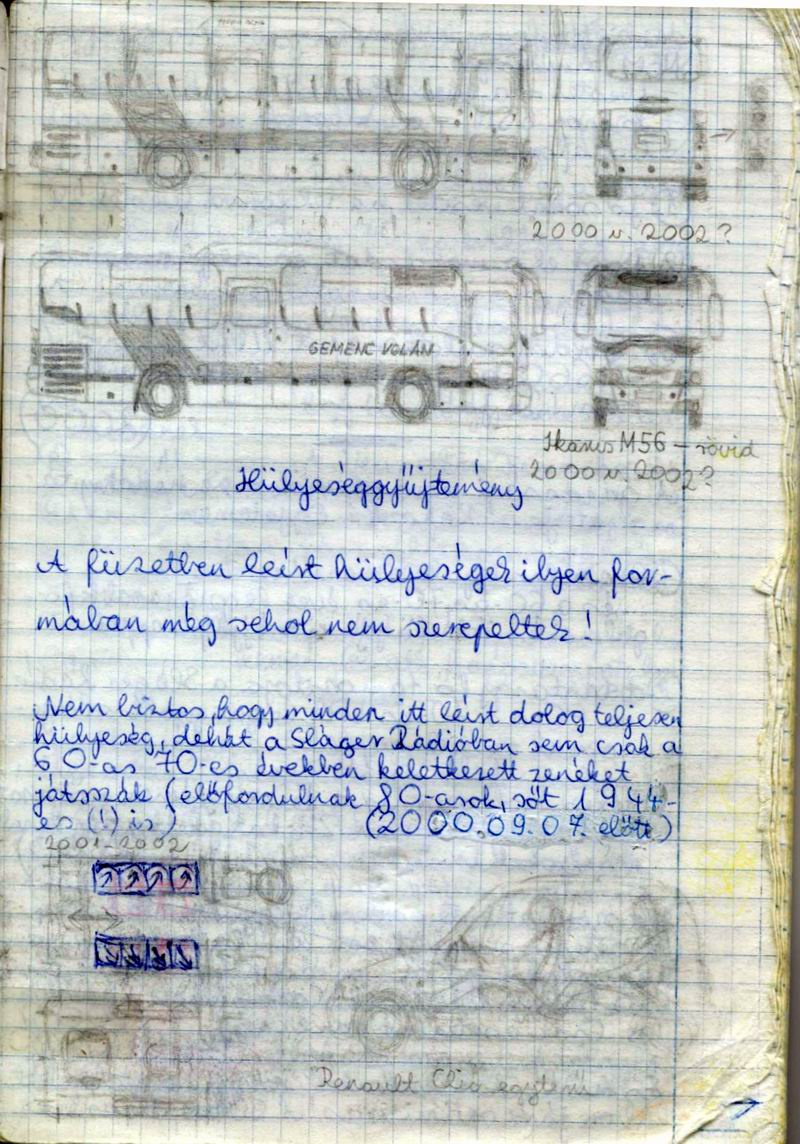 2000 v. 2002?
GEMENC VOLÁN
Ikarus M56 – rövid
2000 v. 2002?
Hülyeséggyűjtemény
A füzetben leírt hülyeségek ilyen for-
mában még sehol nem szerepeltek!
Nem biztos, hogy minden itt leírt dolog teljesen
hülyeség, dehát a Sláger Rádióban sem csak a
60-as 70-es években keletkezett zenéket
játsszák (előfordulnak 80-asok, sőt 1944-
es (!) is)
(2000.09.07. előtt)
2001-2002
Renault Clio